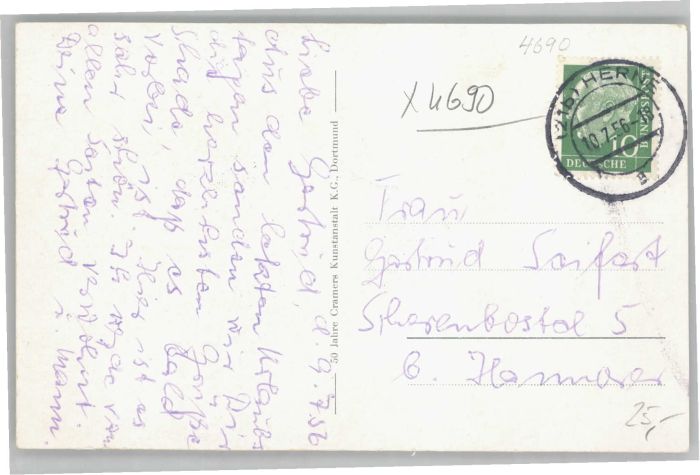 4690
X 4690
(21b) HERNE
10.7.56-
10
DEUTSCHE
BUNDESPOST
Frau
Gertrud Seifert
5
b. Hannover
25,-
50 Jahre Cramers Kunstanstalt K.G., Dortmund
Liebe d. 9.7.56
Aus den letzten Urlaubs
tagen senden wir Dir
die herzlichsten Grüße
Schade, daß es bald
vorbei ist. Hier ist es
sehr schön.
allen Seiten verwöhnt.
Deine u. Mann.